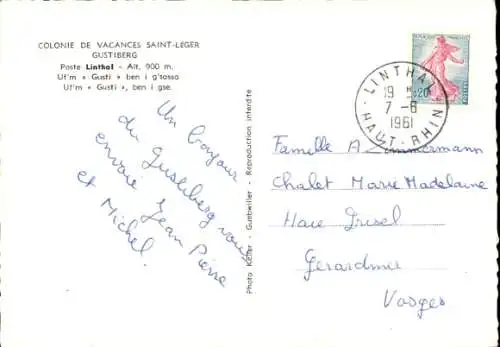 COLONIE DE VACANCES SAINT-LEGER
GUSTIBERG
Poste Linthal - Alt. 900 m.
Ut'm « Gusti » ben i g'tossa
Ut'm « Gusti », ben i gse.
Un bonjour
du Gustiberg vous
envoie Jean Pierre
et Michel.
Photo Keller - Guebwiller - Reproduction interdite
LINTHAL
19 H 20
7 - 8
1961
HAUT-RHIN
Famille A Zimmermann
Chalet Marie Madelaine
Haie Grisel
Gerardmer
Vosges